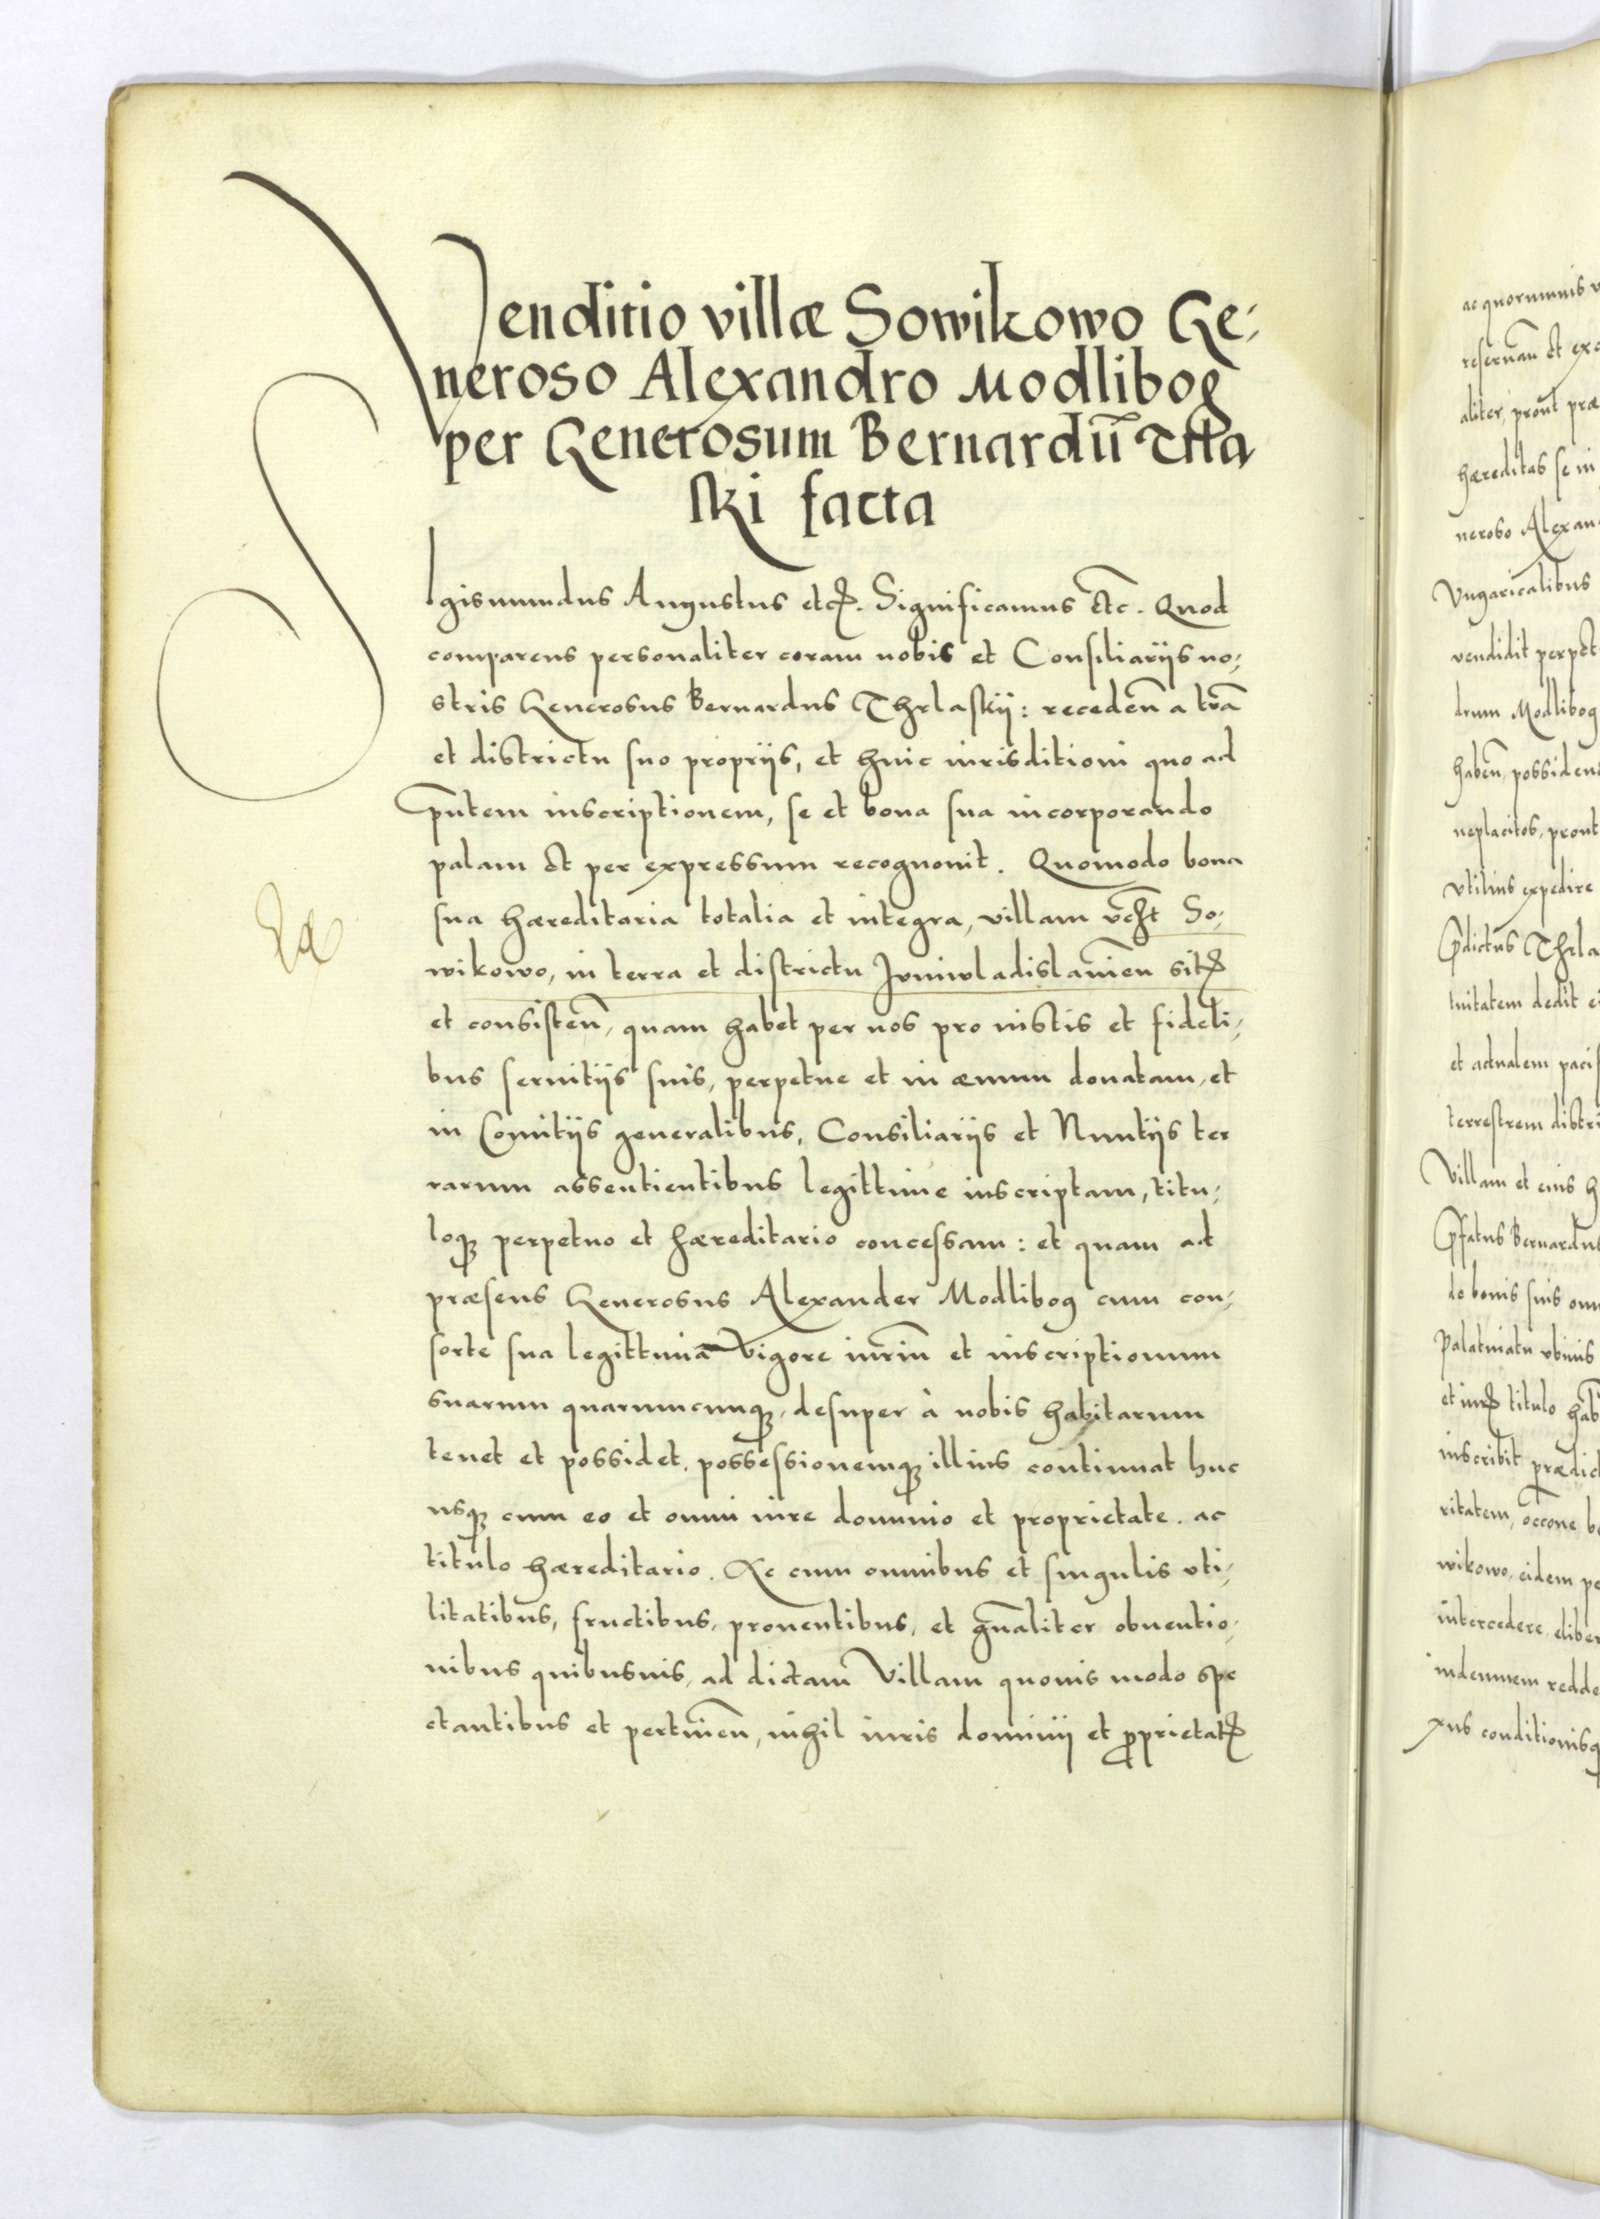 Venditio villæ Sowikowo Ge-
neroso Alexandro Modlibog
per Generosum Bernardū
ski facta
Sigismundus Augustus etcꝫ. Significamus etc. Quod
comparens personaliter coram nobis et Consiliarijs no-
stris Generosus Bernardus Thrlaskij: receden̄ a tr̄a
et districtu suo proprijs, et huic iurisditioni quo ad
p̄ntem inscriptionem, se et bona sua incorporando
palam et per expressum recognouit. Quomodo bona
sua hæreditaria totalia et integra, villam So-
wikowo, in terra et districtu Juniwladislauien̄ sitꝫ
et consisten̄, quam habet per nos pro iustis et fideli-
bus seruitijs suis, perpetue et in æuum donatam, et
in Comitijs generalibus, Consiliarijs et Nuntijs ter
rarum assentientibus legittime inscriptam, titu-
loqꝫ perpetuo et hæreditario concessam: et quam ad
præsens Generosus Alexander Modlibog cum con-
sorte sua legittima Vigore iuriū et inscriptionum
suarum quarumcunqꝫ, desuper à nobis habitarum
tenet et possidet, possessionemqꝫ illius continuat huc
usqꝫ cum eo et omni iure dominio et proprietate. ac
titulo hæreditario. Ac cum omnibus et singulis vti-
litatibus, fructibus, prouentibus, et gn̄aliter obuentio-
nibus quibusuis, ad dictam Villam quouis modo spe
ctantibus et pertinen̄, nihil iuris dominij et ꝓprietatꝫ
ac quorumuis
reseruan̄ et
aliter, prout
hæreditas se in
neroso
Vngaricalibus
vendidit
drum Modlibog
haben̄, possiden
neplacitos, prout
vtilius expedire
P̄dictus
tuitatem dedit
et actualem
terrestrem
Villam et eius
P̄fatus
do bonis suis
Palatinatu
titulo
inscribit
ritatem,
wikowo, eidem
intercedere,
indemnem
conditionisq